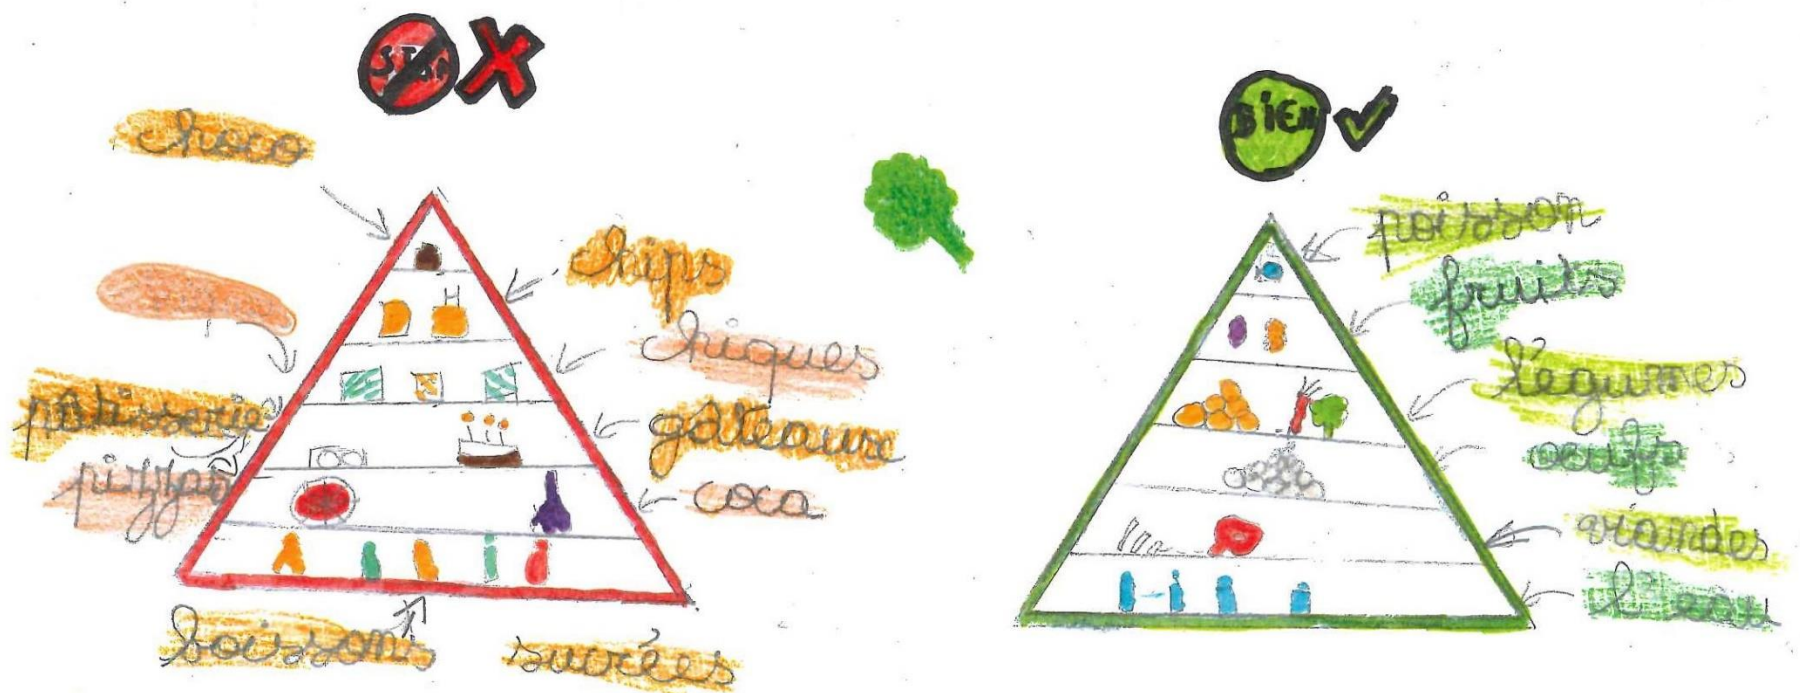 STOP
choco
chips
chiques
pâtisserie
gâteaux
pizzas
coca
boissons sucrées
BIEN
poisson
fruits
légumes
oeufs
viandes
l'eau